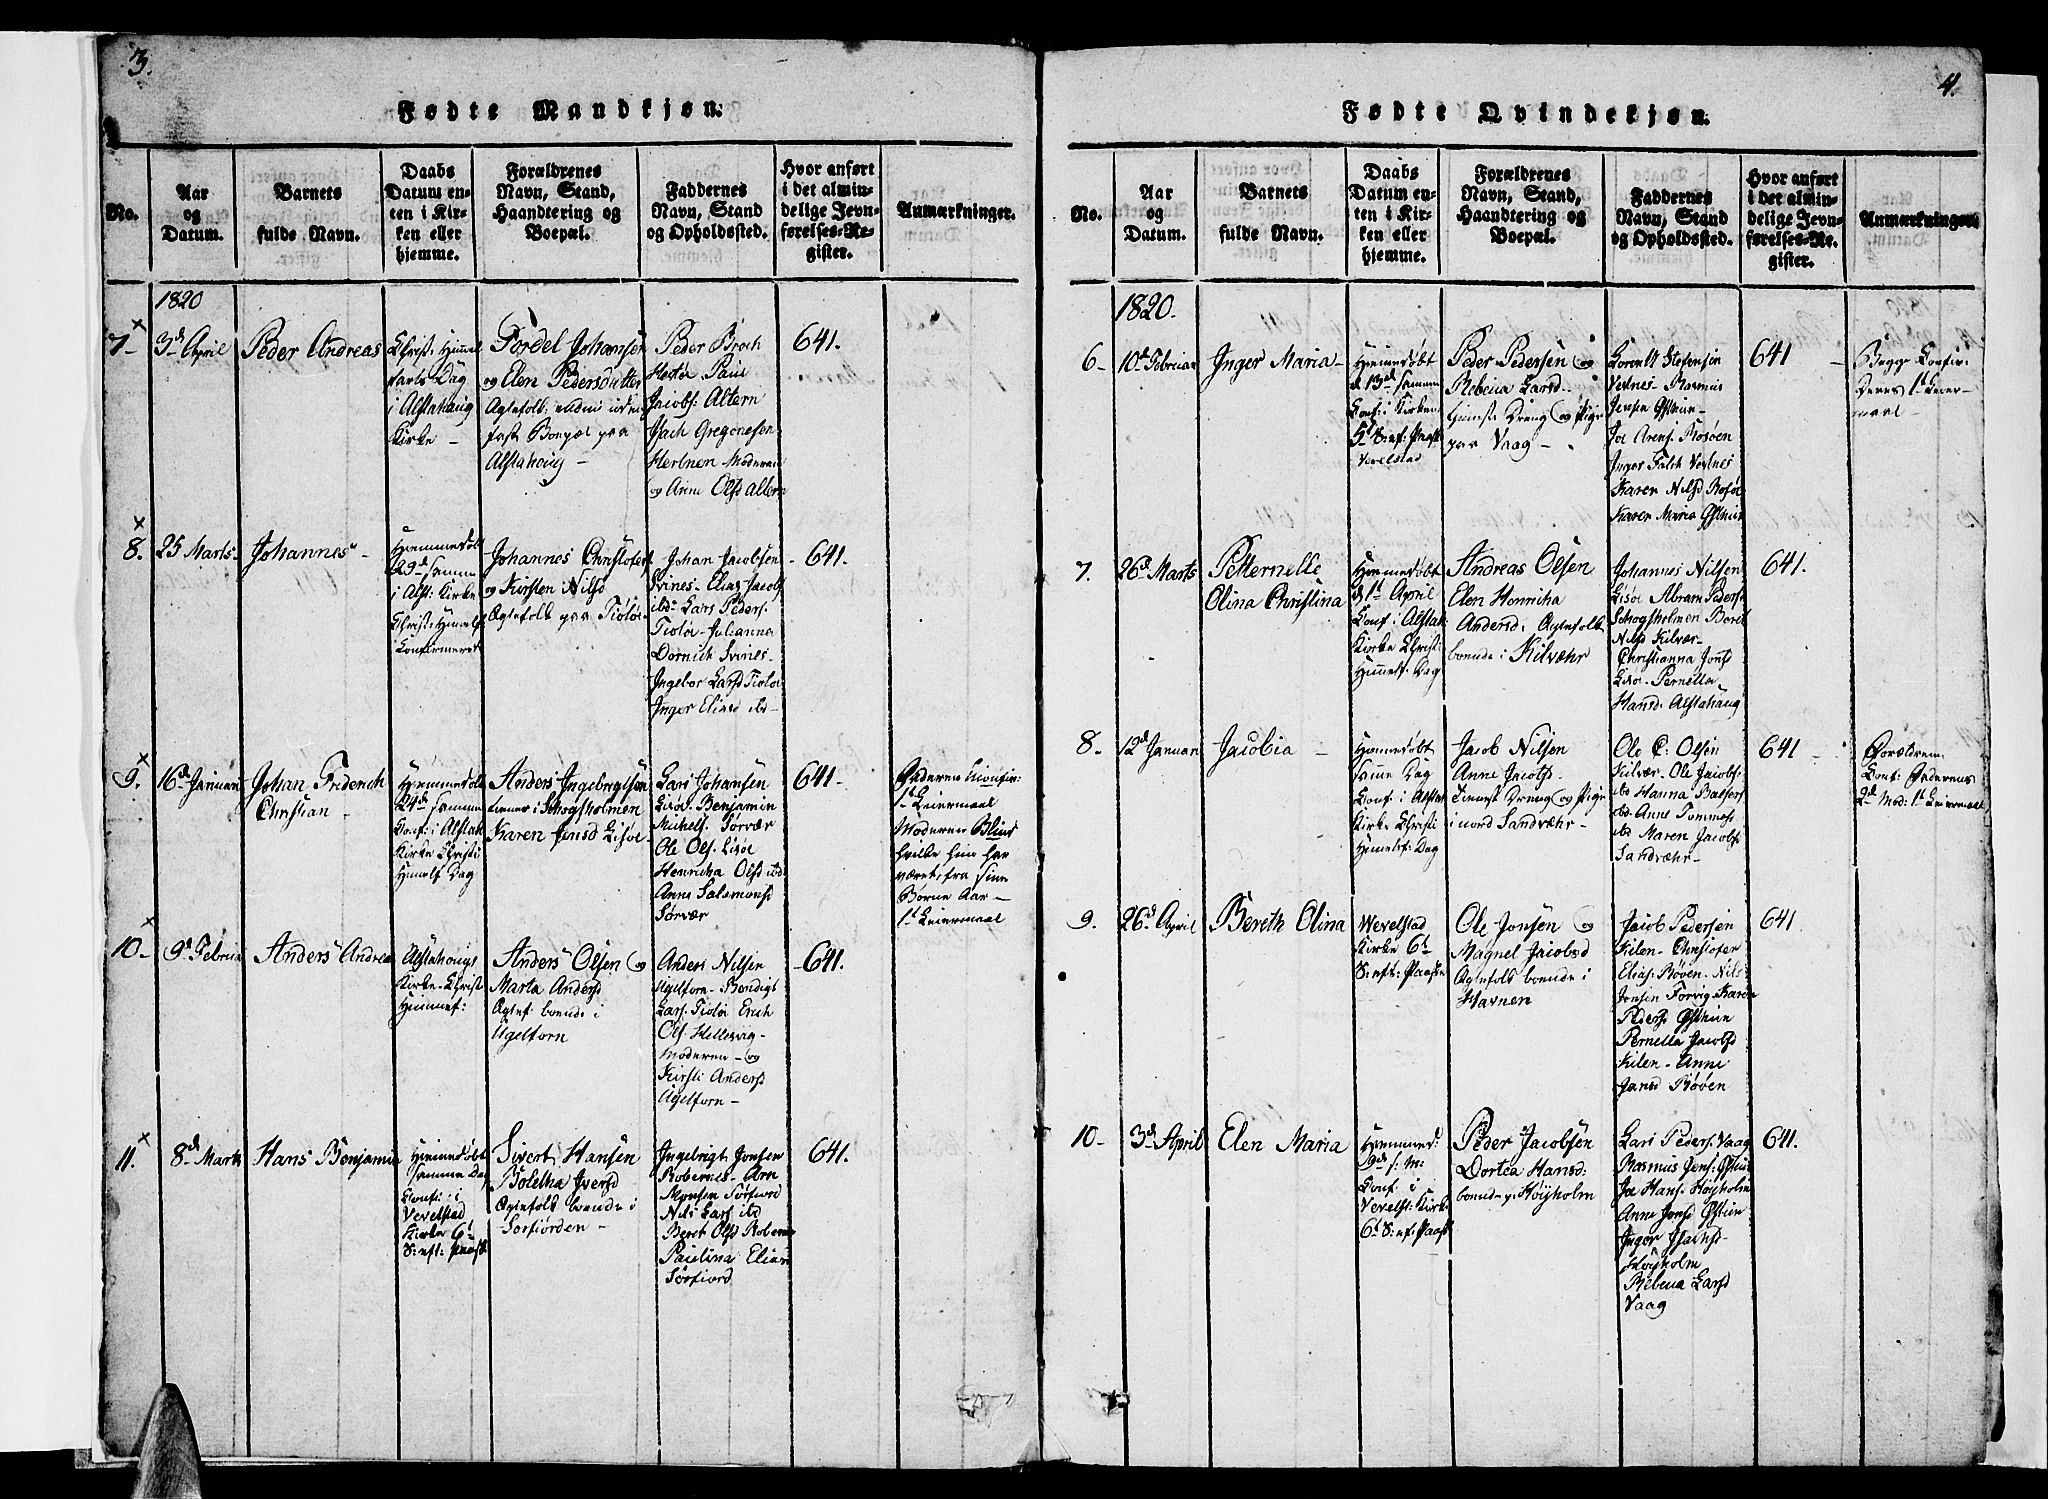 3.
Fødte Mandkjøn.
No.
Aar
og
Datum.
Barnets
fulde Navn.
Daabs
Datum en-
ten i Kir-
ken eller
hjemme.
Forældrenes
Navn, Stand,
Haandtering og
Boepæl.
Faddernes
Navn, Stand
og Opholdssted.
Hvor anført
i det almin-
delige Jevn-
førelses-Re-
gister.
Anmærkninger.
1820
7-
3d April
Peder Andreas
Christ: Himmel
farts Dag
i Alstahaug
Kirke -
Tordel Johansen
og Elen Pedersdatter
Agtefolk uden
fast Boepæl paa
Alstahoug -
Peder Broch
Hestøe Paul
Jacobs: Altern
Isach Gregoriesen
Moderen
og Anne Olsd Altern
641.
8.
25 Marts
Johannes -
Hjemmedøbt
29d samme
i Alst: Kirke
Christ: Himmelf
Confirmeret
Johannes Christofers
og Kirsten Nilsd
Agtefolk paa Tiøtøe
Johan Jacobsen
Svines - Elias Jacobs
ibd - Lars Peders.
Tiøtøe - Julianna
Dornich Svines -
Ingebor Larsd Tiøtøe
Inger Eliasd ibd -
641.
9.
16d Januari
Johan Friderich
Christian -
Hjemmedøbt
24d samme
Conf: i Alstah
Kirke Christi
Himelf Dag
Anders Ingebrigtsen
tienner i Schogsholmen
Karen Jensd Lisøe
Lars Johansen
Lisøe. Benjamin
Michels. Sørvær
Ole Ols. Lisøe
Henricha Olsd ibd
Anne Salamonsd
Sørvær
641-
Faderen Confir:
1t Leiermaal
Moderen Blind
hvilke hun har
været fra sine
Børne Aar -
1t Leiermaal
10-
9d Februa
Anders Andrea
Alstahougs
Kirke - Christ
Himmef:
Anders Olsen og
Marta Andersd
Agtef boende i
Ugelforn
Anders Nilsen
Ugelforn - Bendigt
Lars. Tiøtøe Erich
Ols Hellesvig -
Moderen - og
Kirsti Andersd
Ugelforn -
641.
11.
8d Marts
Hans Benjamin
Hiemmedøbt
samme Dag
Conf: i
Vevelstad
Kirke 6t
S: eft: Paask
Sivert Hansen
Boletha Iversd
Agtefolk boende i
Sørfiorden -
Ingebrigt Jonsen
Robernes - Arn
Monsen Sørfiord
Nils Lars ibd
Beret Olsd Robern
Paulina Elias
Sørfiord
641.
4.
Fødte Qvindekjøn.
No.
Aar
og
Datum.
Barnets
fulde Navn.
Daabs
Datum en-
ten i Kir-
ken eller
hjemme.
Forældrenes
Navn, Stand,
Haandtering og
Boepæl.
Faddernes
Navn, Stand
og Opholdssted.
Hvor anført
i det almin-
delige Jevn-
førelses-Re-
gister.
Anmærkninger.
1820.
6-
10d Februar
Inger Maria -
Hiemmedøbt
d 13d samme
Conf: i Kirken
5t S: ef: Paask
Vevelstad
Peder Pedersen og
Rebecca Larsd.
Dreng og Pige
paa Vaag -
Stefensen
Vestnes - Rasmus
Jensen Østuun -
Joe Arens. Rosøen
Inger Falch Vestnes
Karen Nilsd Rosøe
Karen Maria Østuun
641
Begge Confir:
Deres 1t Leier-
maal -
7.
26d Marts
Petternelle
Olina Christina
Hjemmedøbt
d 1t April
Conf: i Alstah
Kirke Christi:
Himmelf: Dag
Andreas Olsen
Elen Henricha
Andersd. Agtefolk
boende i Kilværhr
Johannes Nilsen
Lisøe Abram Peders.
Schogsholmen Beret
Nilsd Kilvær -
Christianna Jonsd
Lisøe - Pernella
Hansd. Alstahaug
641.
8.
12d Januari
Jacobia -
Hjemmedøbt
samme Dag
Conf: i Alstah
Kirke Christi
Himmelf: Dag
Jacob Nilsen
Anne Jacobsd.
tiennest Dreng og Pige
i nord Sandvæhr -
Ole C: Olsen
Kilvær - Ole Jacobs.
ibd Hanna Baltzers
ibd - Anne Tommesd
ibd Maren Jacobsd
Sandvæhr -
641
Forældrene
Conf: Faderens
2d Mod: 1t Leiermaal
9.
26d April
Bereth Olina
Wevelstad
Kirke 6t
S: eft: Paaske
Ole Jonsen og
Magnel Jacobsd
Agtefolk boende i
Havnen
Jacob Pedersen
Kilen - Christofer
Elias. Røven - Nils
Jonsen Forvig - Karen
Pedersd Østuun
Pernella Jacobsd
Kilen - Anne
Jansd Røven
641
10-
3d April
Elen Maria
Hjemmed:
9d s: M:
Conf: i
Vevelst: Kirk
6t S: ef: Paask
Peder Jacobsen
Dortea Hansd:
boende p. Høyholm
Lars Peders. Vaag
Rasmus Jens: Østuun
Joe Hans: Høyholm
Anne Jonsd Østuun
Inger Isachsd -
Høyholm
Rebecca Larsd
Vaag
641.